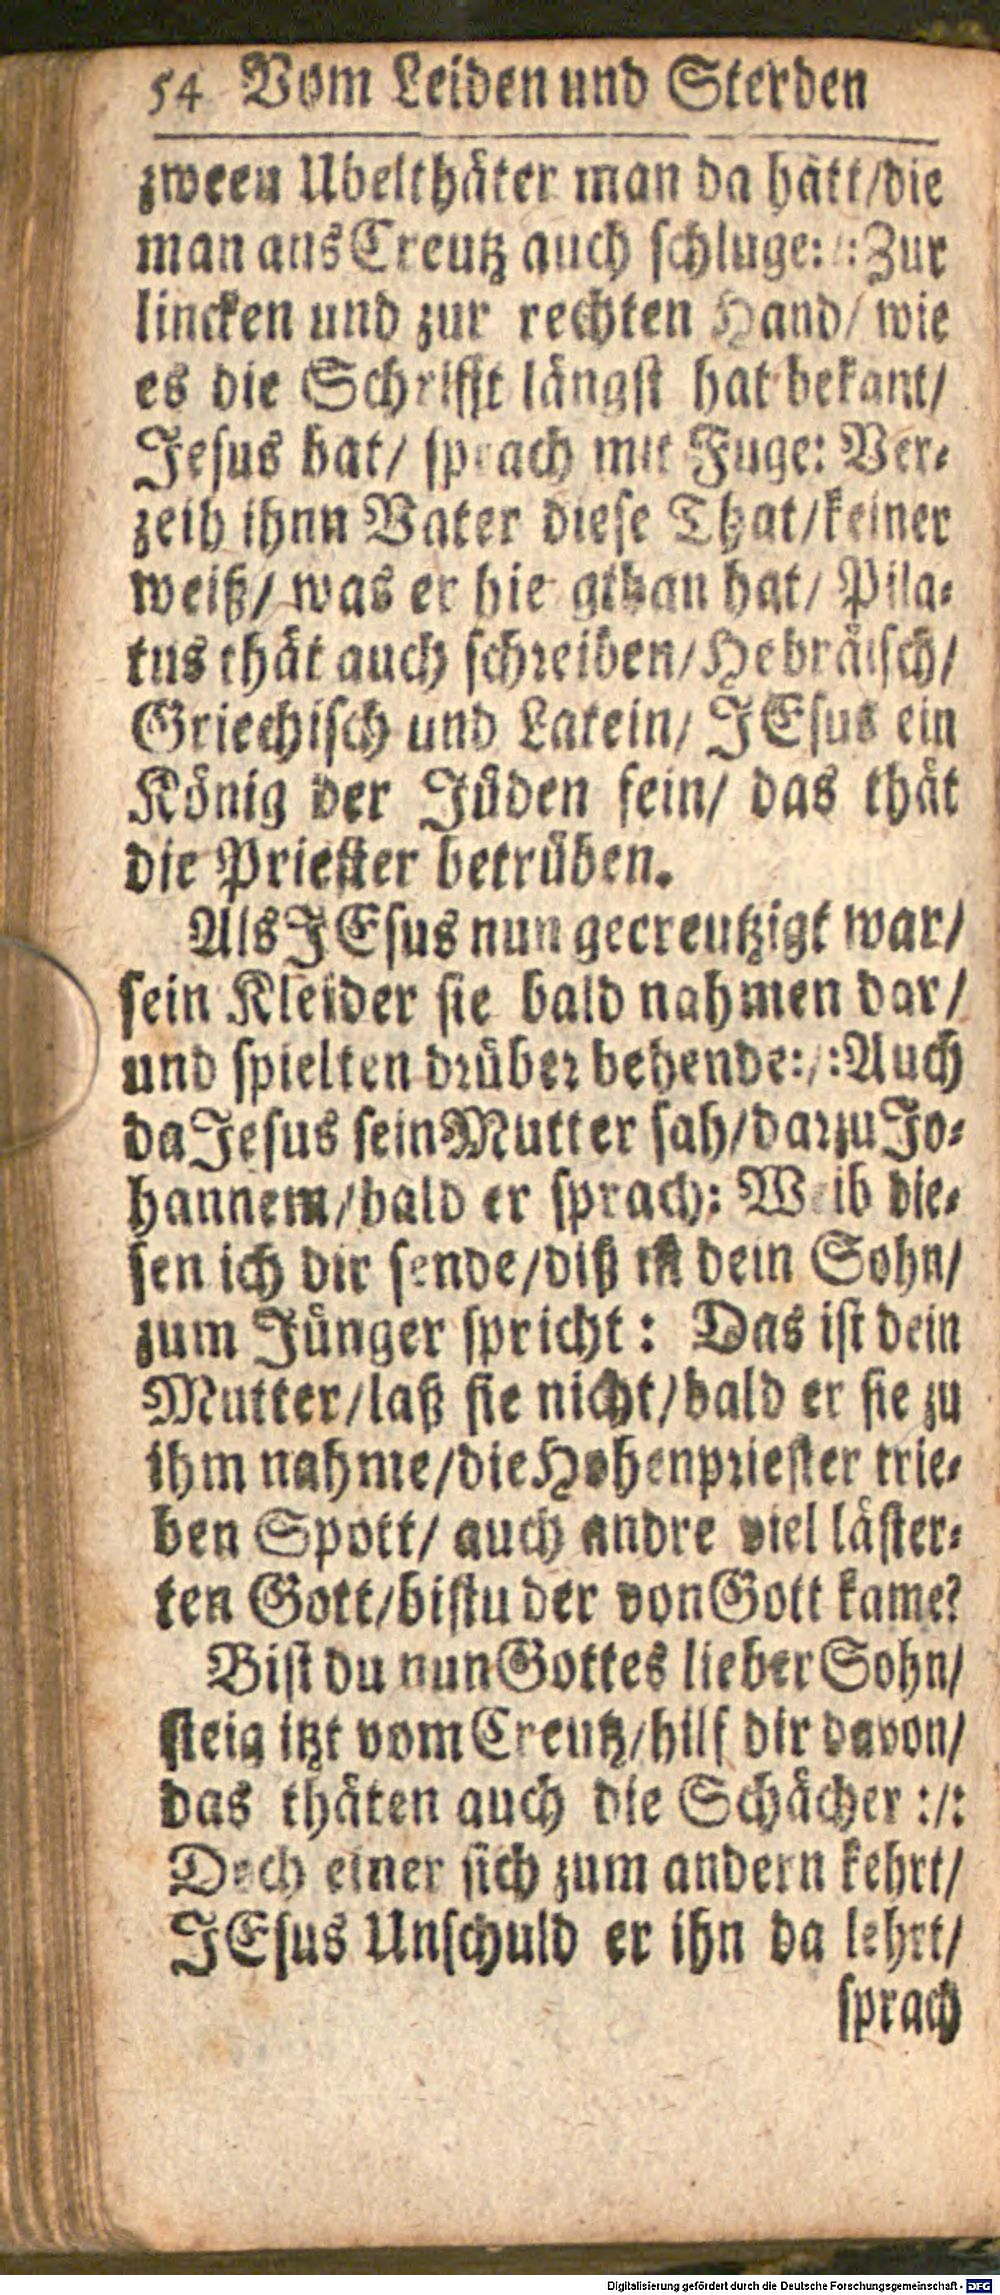 54 Vom Leiden und Sterden
zween Ubelthäter man da hätt/die
man ans Creutz auch schluge: /: Zur
lincken und zur rechten Hand/ wie
es die Schrifft längst hat bekant/
Jesus bat/ sprach mit Fuge: Ver-
zeih ihnn Vater diese That/keiner
weiß/ was er hie gthan hat/ Pila-
tus thät auch schreiben/Hebräisch/
Griechisch und Latein/ JEsus ein
König der Jüden sein/ das thät
die Priester betrüben.
Als JEsus nun gecreutzigt war/
sein Kleider sie bald nahmen dar/
und spielten drüber behende:/:Auch
da Jesus sein Mutter sah/darzu Jo-
hannem/bald er sprach: Weib die-
sen ich dir sende/diß ist dein Sohn/
zum Jünger spricht: Das ist dein
Mutter/laß sie nicht/bald er sie zu
ihm nahme/die Hohenpriester trie-
ben Spott/ auch andre viel läster-
ten Gott/bistu der von Gott kame?
Bist du nun Gottes lieber Sohn/
steig itzt vom Creutz/hilf dir davon/
das thäten auch die Schächer :/:
Doch einer sich zum andern kehrt/
JEsus Unschuld er ihn da lehrt/
sprach
Digitalisierung gefördert durch die Deutsche Forschungsgemeinschaft - DFG